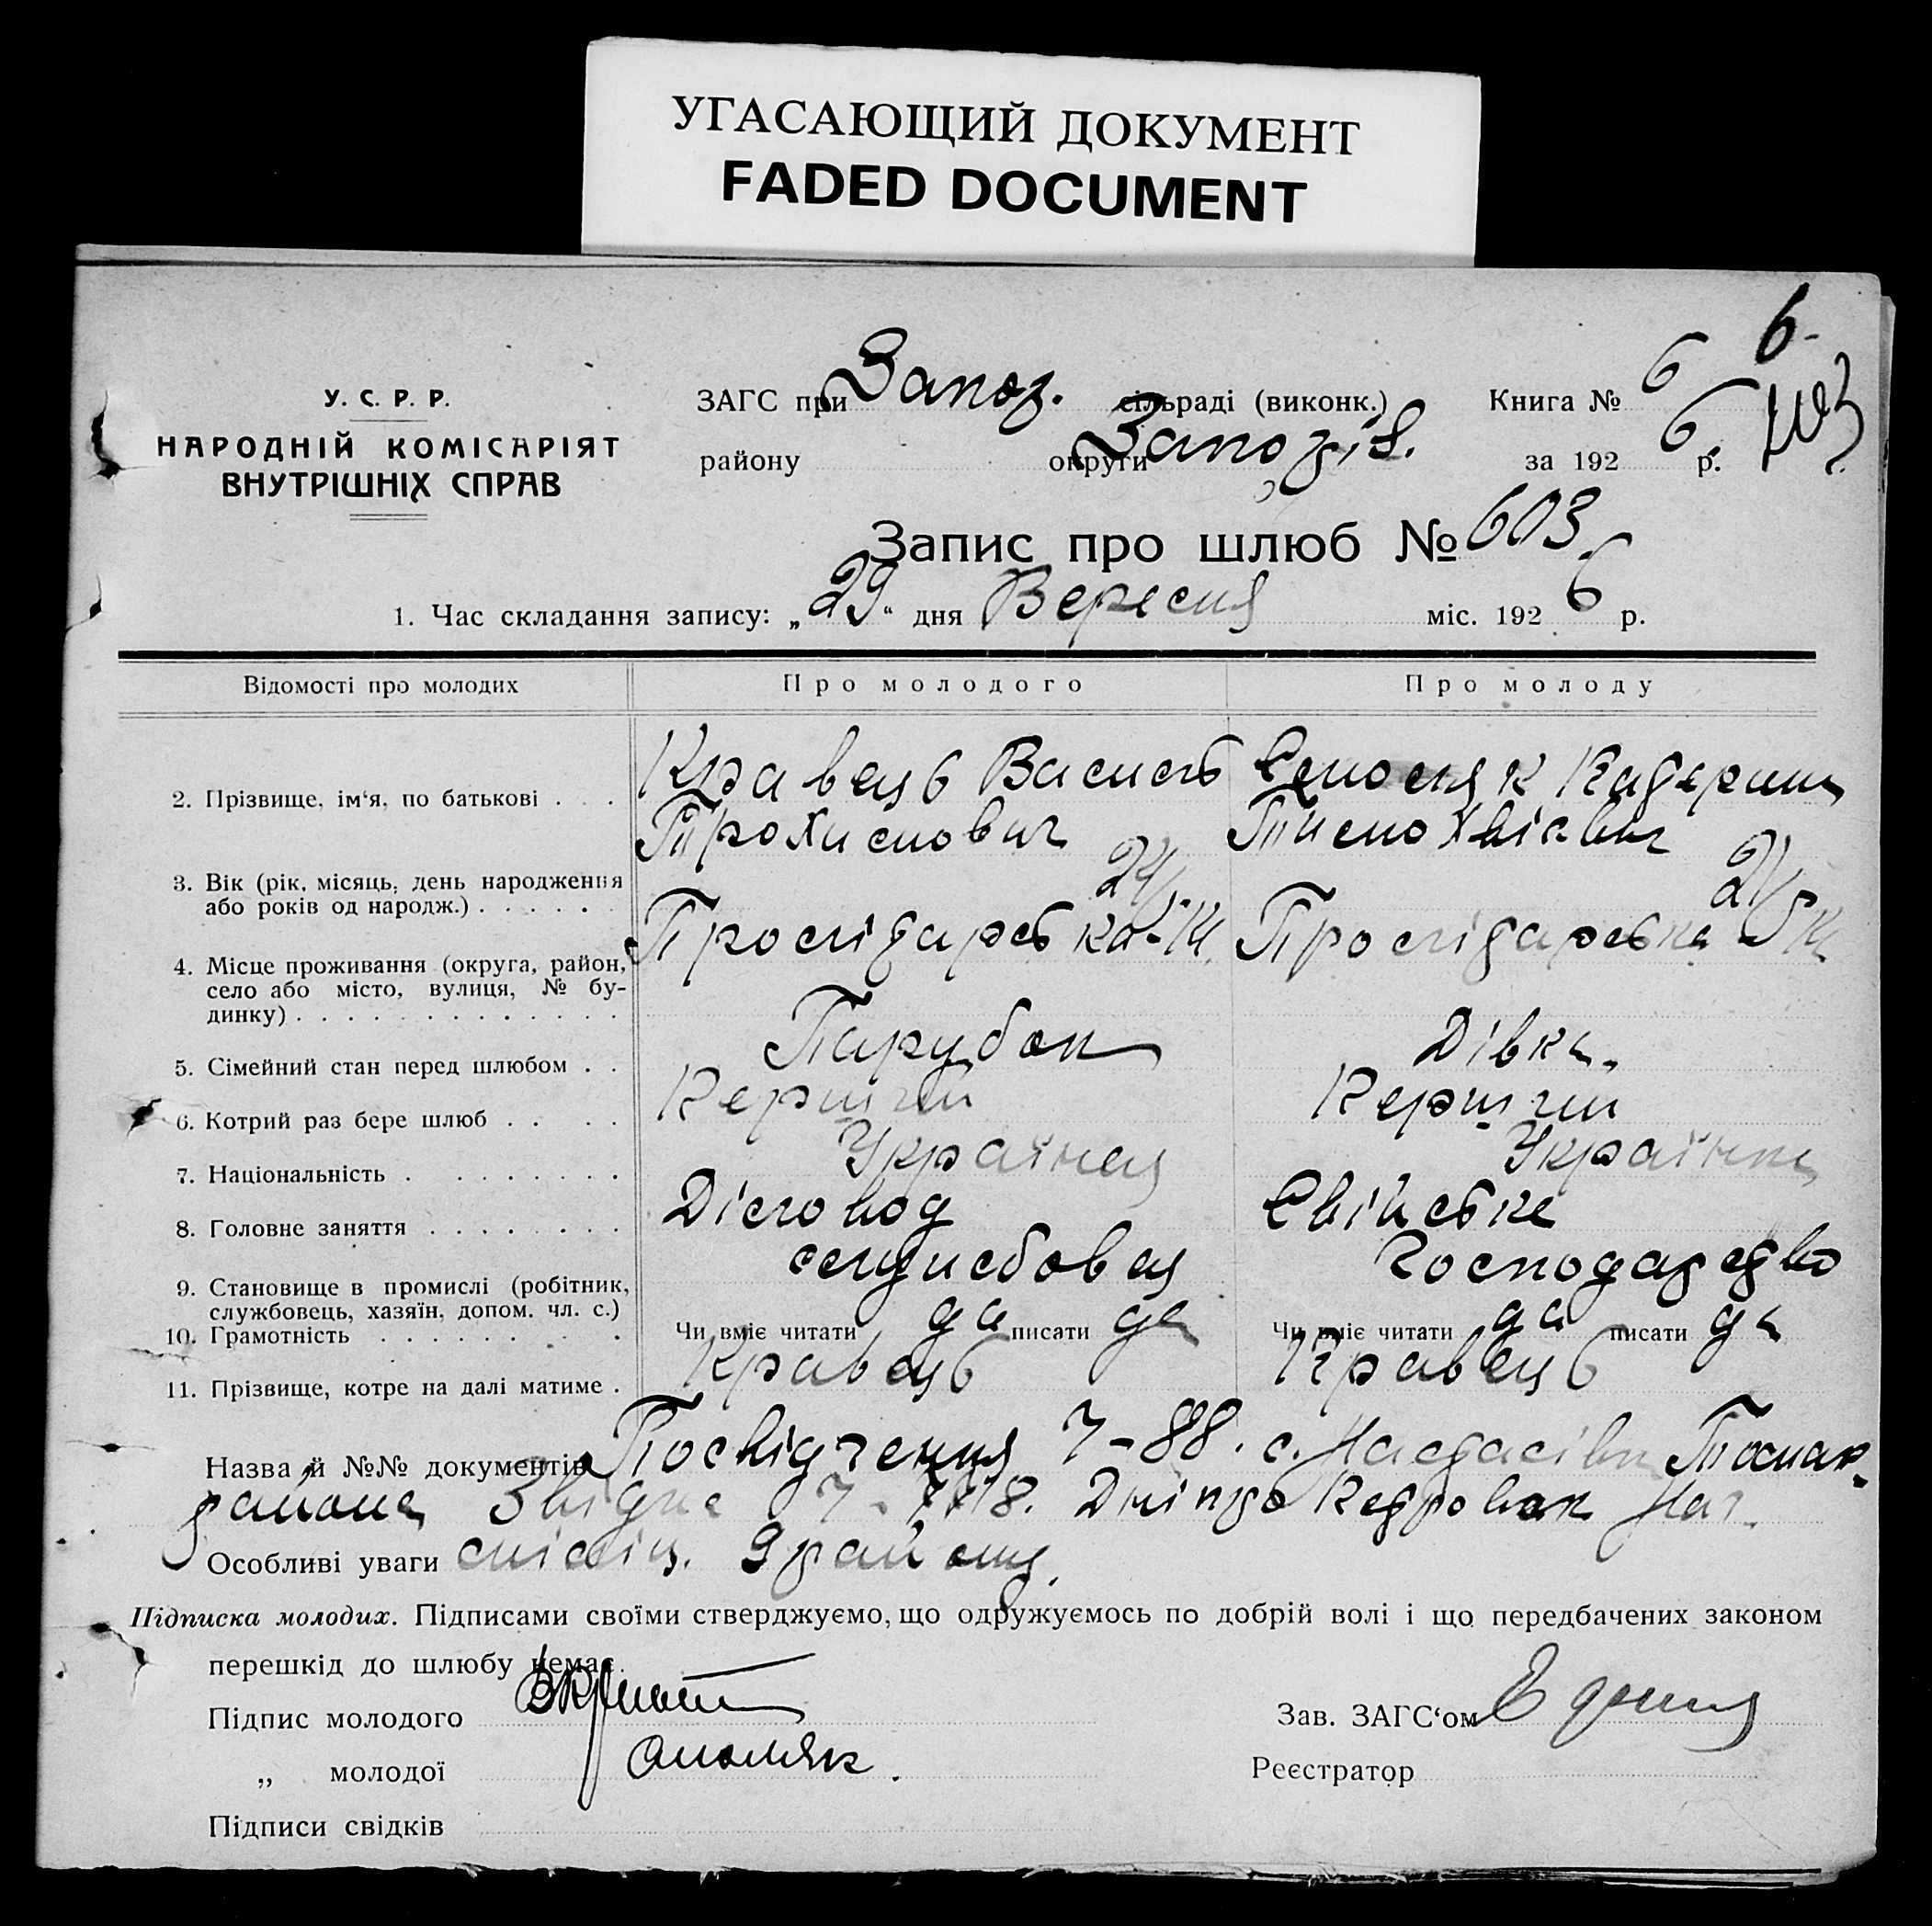 УГАСАЮЩИЙ ДОКУМЕНТ
FADED DOCUMENT
6
У. С. Р. Р.
НАРОДНІЙ КОМІСАРІЯТ
ВНУТРІШНІХ СПРАВ
ЗАГС при Запоз. сільраді (виконк.) Книга № 6
району округи Запозіз. за 192 6 р.
Запис про шлюб № 603
1. Час складання запису: „29" дня Вересня міс. 192 6 р.
Відомості про молодих Про молодого Про молоду
2. Прізвище, ім'я, по батькові . . . Кравець Василь Катерина
Трохимович Тимохвієвич
3. Вік (рік, місяць, день народження
або років од народж.) . . . . . . 24 21
4. Місце проживання (округа, район,
село або місто, вулиця, № бу-
динку) . . . . . . . . . . . . .
5. Сімейний стан перед шлюбом . . Парубок Дівка.
6. Котрий раз бере шлюб . . . . Перший Перший
7. Національність . . . . . . . . Українец Українка
8. Головне заняття . . . . . . . . Діловод Свійське
9. Становище в промислі (робітник,
службовець, хазяїн, допом. чл. с.) служзбовец господарство
10. Грамотність . . . . . . . Чи вміє читати да писати да Чи вміє читати да писати да
11. Прізвище, котре на далі матиме . Кравець Кравець
Назва й №№ документів Посвідчення 7-88. с. Настасівки Томак.
района Дніпро Петровск
Особливі уваги району.
Підписка молодих. Підписами своїми стверджуємо, що одружуємось по добрій волі і що передбачених законом
перешкід до шлюбу немає.
Підпис молодого Зав. ЗАГС'ом
„ молодої Реєстратор
Підписи свідків